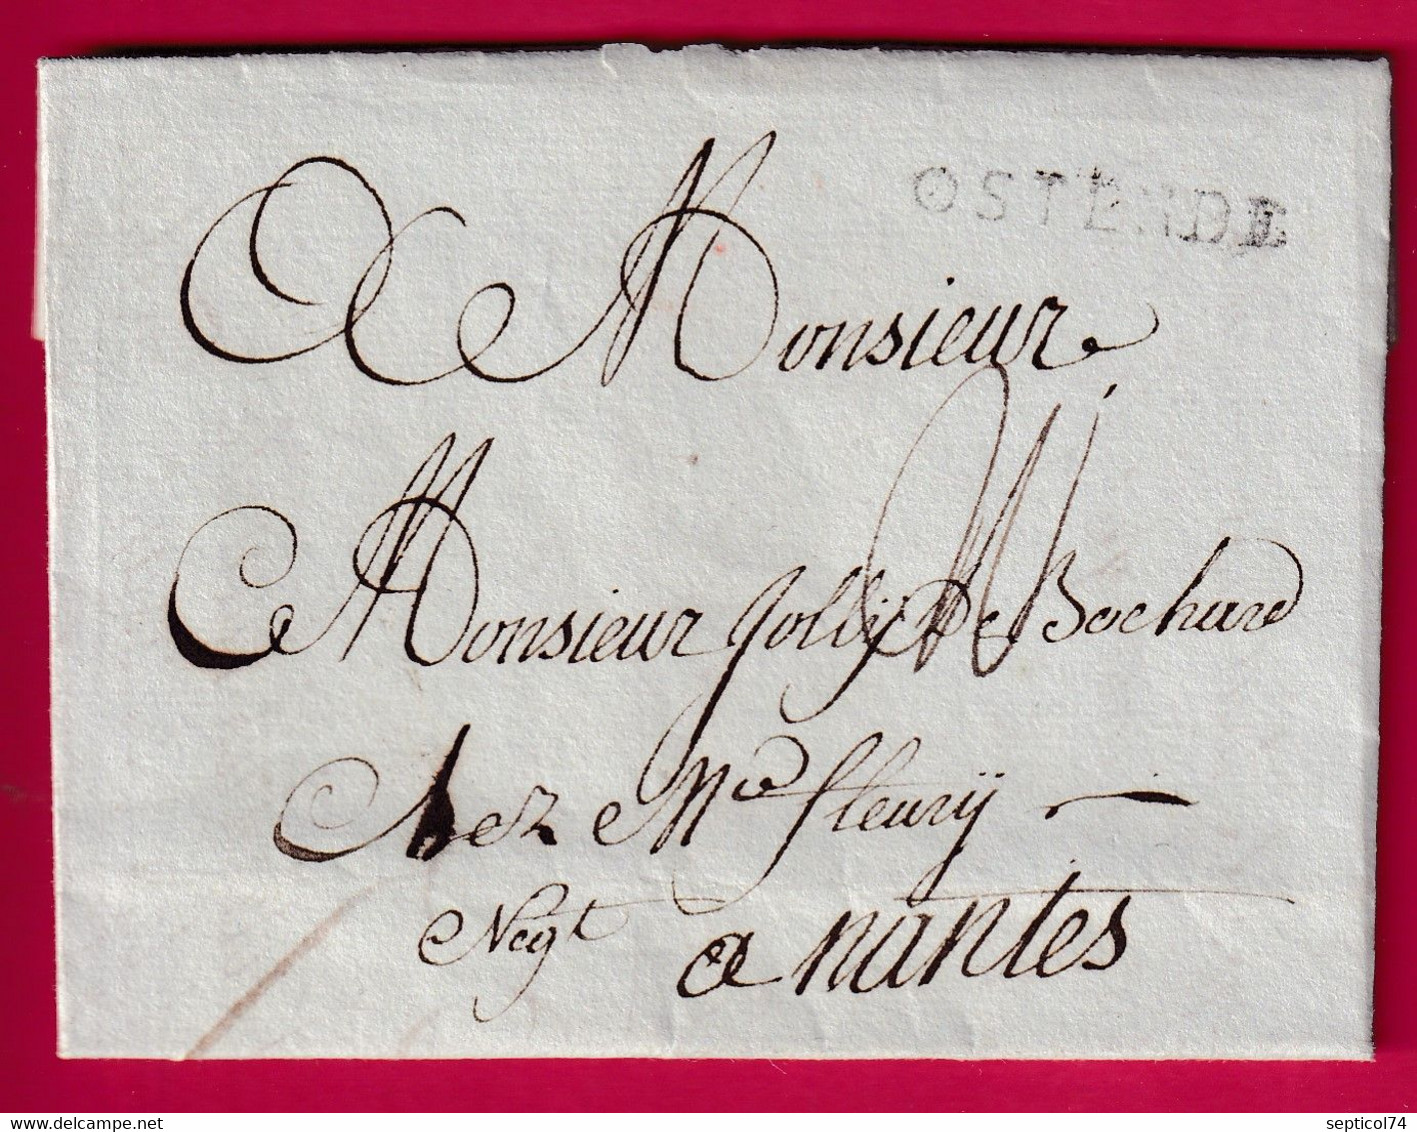 OSTENDE
A Monsieur
Monsieur Jollÿ De Bochard
Chez Mre fleurÿ
Negt a nantes
www.delcampe.net
septicol74